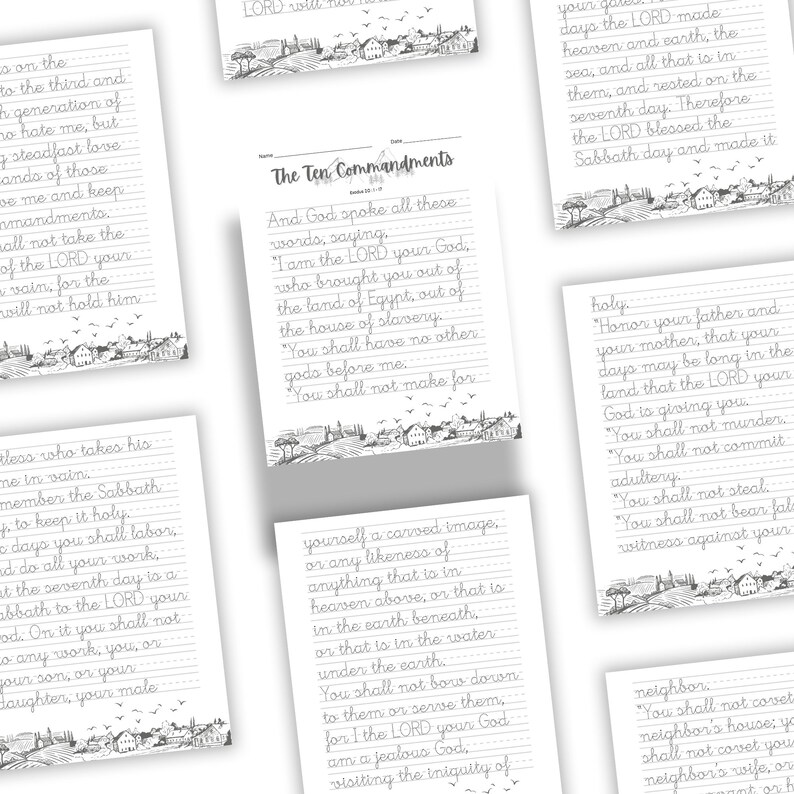 LORD will not
Name
Date
The Ten Commandments
Exodus 20:1-17
And God spoke all these
words, saying,
"I am the LORD your God,
who brought you out of
the land of Egypt, out of
the house of slavery.
"You shall have no other
gods before me.
"You shall not make for
yourself a carved image,
or any likeness of
anything that is in
heaven above, or that is
in the earth beneath,
or that is in the water
under the earth.
You shall not bow down
to them or serve them,
for I the LORD your God
am a jealous God,
visiting the iniquity of
on the
to the third and
generation of
hate me, but
steadfast love
of those
me and keep
shall not take the
of the LORD your
vain, for the
will not hold him
who takes his
in vain.
the Sabbath
to keep it holy.
days you shall labor,
do all your work,
the seventh day is a
to the LORD your
On it you shall not
any work, you, or
your son, or your
daughter, your male
your gates.
days the LORD made
heaven and earth, the
sea, and all that is in
them, and rested on the
seventh day. Therefore
the LORD blessed the
Sabbath day and made it
holy.
"Honor your father and
your mother, that your
days may be long in the
land that the LORD your
God is giving you.
"You shall not murder.
"You shall not commit
adultery.
"You shall not steal.
"You shall not bear
witness against your
neighbor.
"You shall not
neighbor's house;
shall not covet
neighbor's wife, or
or